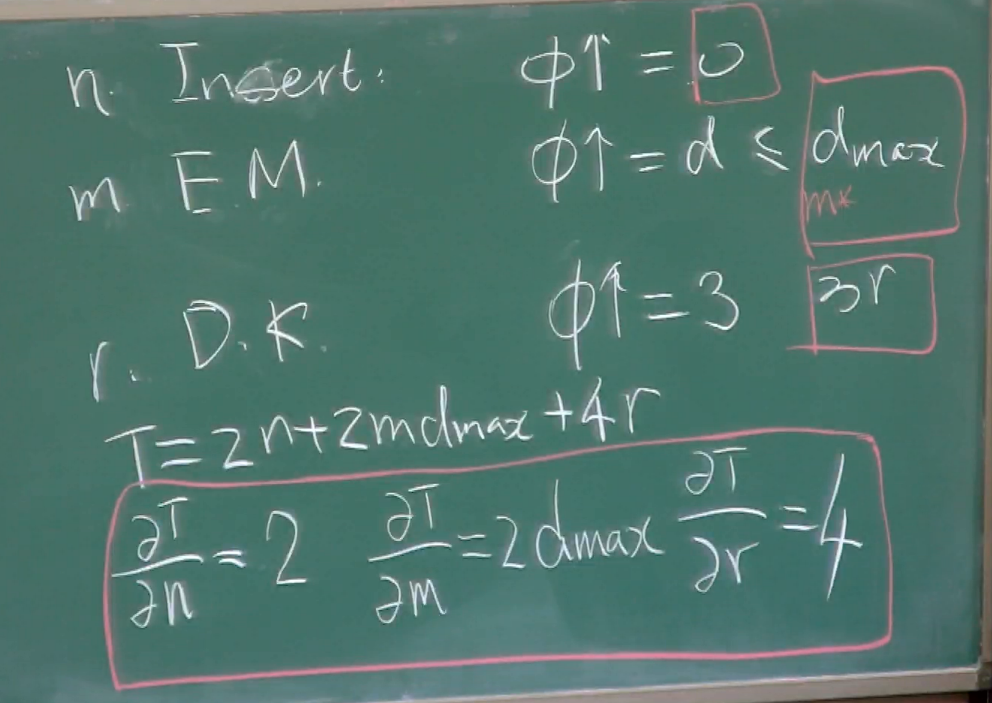 n. Insert: ϕ↑ = 0
m. E.M. ϕ↑ = d ≤ dmax
m*
r. D.K. ϕ↑ = 3 3r
T = 2n + 2mdmax + 4r
∂T/∂n = 2 ∂T/∂m = 2dmax ∂T/∂r = 4